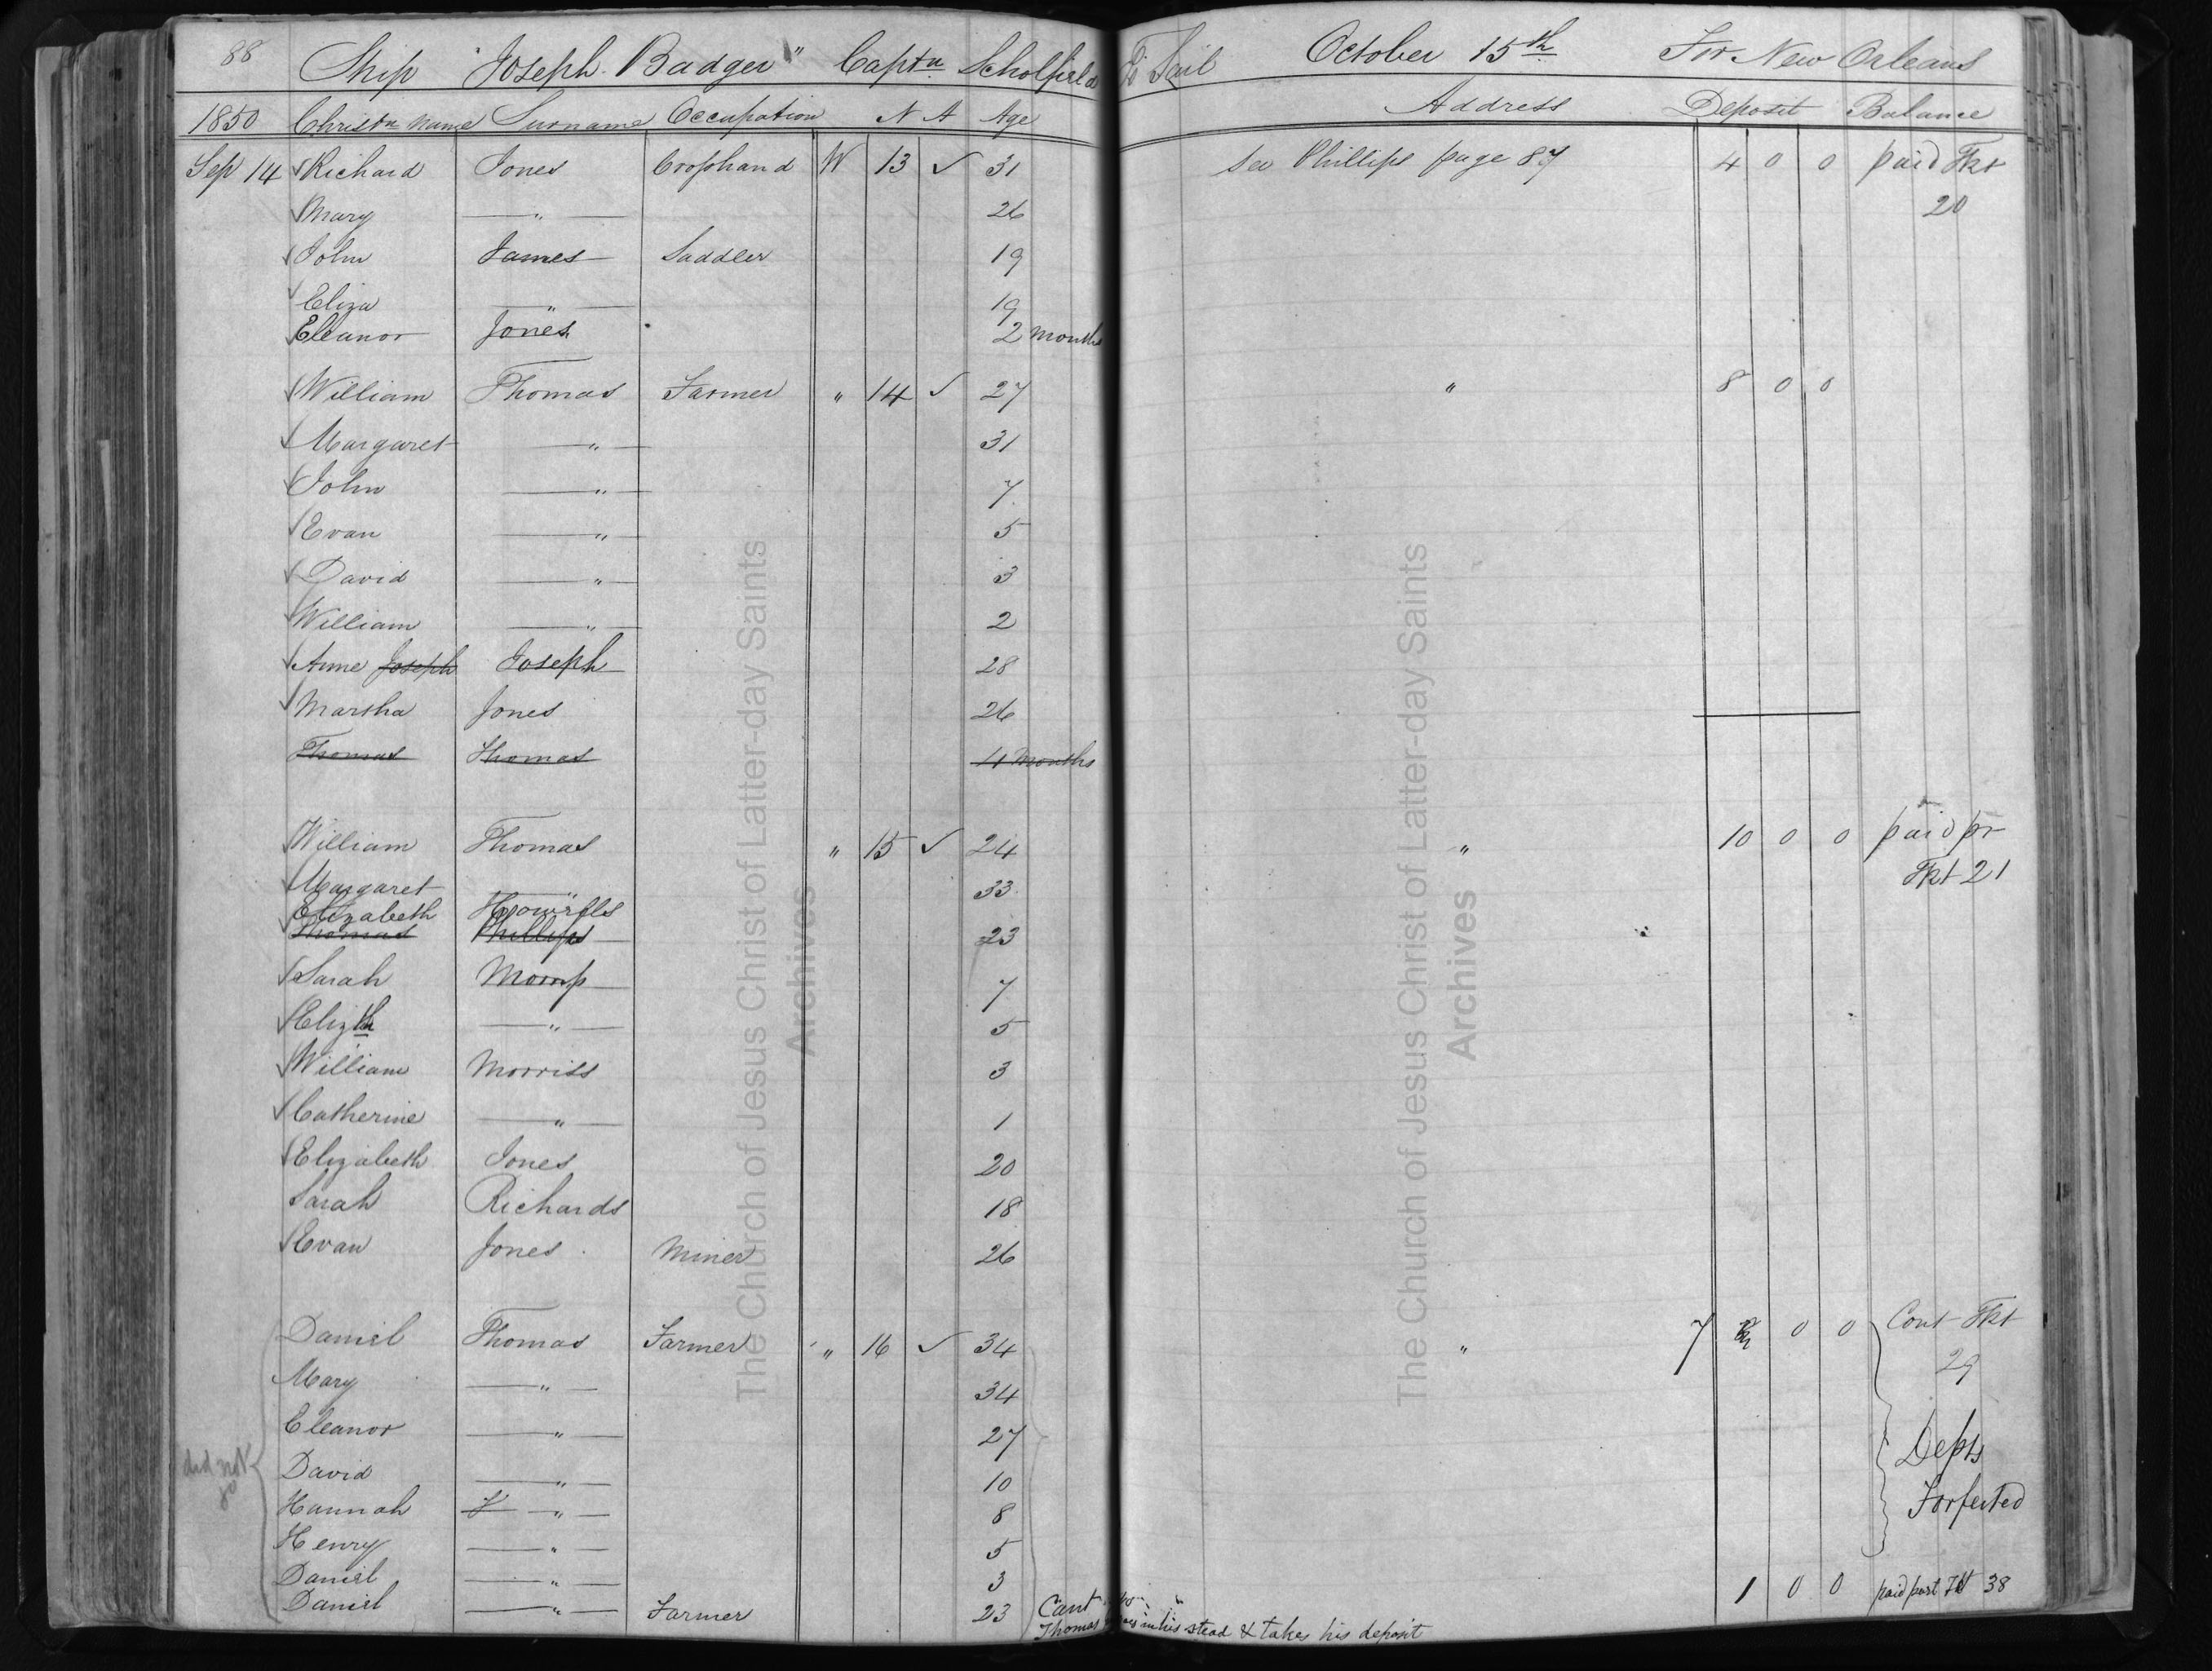 88 Ship "Joseph Badger" Captn Scholfield To Sail October 15th For New Orleans
1850 Christn Name Surname Occupation N A Age Address Deposit Balance
Sep 14 Richard Jones Crophand W 13 ✓ 31 See Phillips page 87 4 0 0 paid Tkt
Mary " 26 20
John James Saddler 19
Eliza " 19
Eleanor Jones 2 months
William Thomas Farmer " 14 ✓ 27 " 8 0 0
Margaret " 31
John " 7
Evan " 5
David " 3
William " 2
Anne Joseph Joseph 28
Martha Jones 26
Thomas Thomas 4 Months
William Thomas " 15 ✓ 24 " 10 0 0 paid pr
Margaret " 33 Tkt 21
Elizabeth
Thomas Phillips 23
Sarah 7
Elizth " 5
William Morriss 3
Catherine " 1
Elizabeth Jones 20
Sarah Richards 18
Evan Jones Miner 26
Daniel Thomas Farmer " 16 ✓ 34 " 7 0 0 Cont Tkt
Mary " 34 29
Eleanor " 27
did not go
David " 10 Depts
Hannah " 8 Forfeited
Henry " 5
Daniel " 3
Daniel " Farmer 23 Cant go 1 0 0 paid part Tkt 38
Thomas in his stead & takes his deposit
The Church of Jesus Christ of Latter-day Saints
Archives
The Church of Jesus Christ of Latter-day Saints
Archives